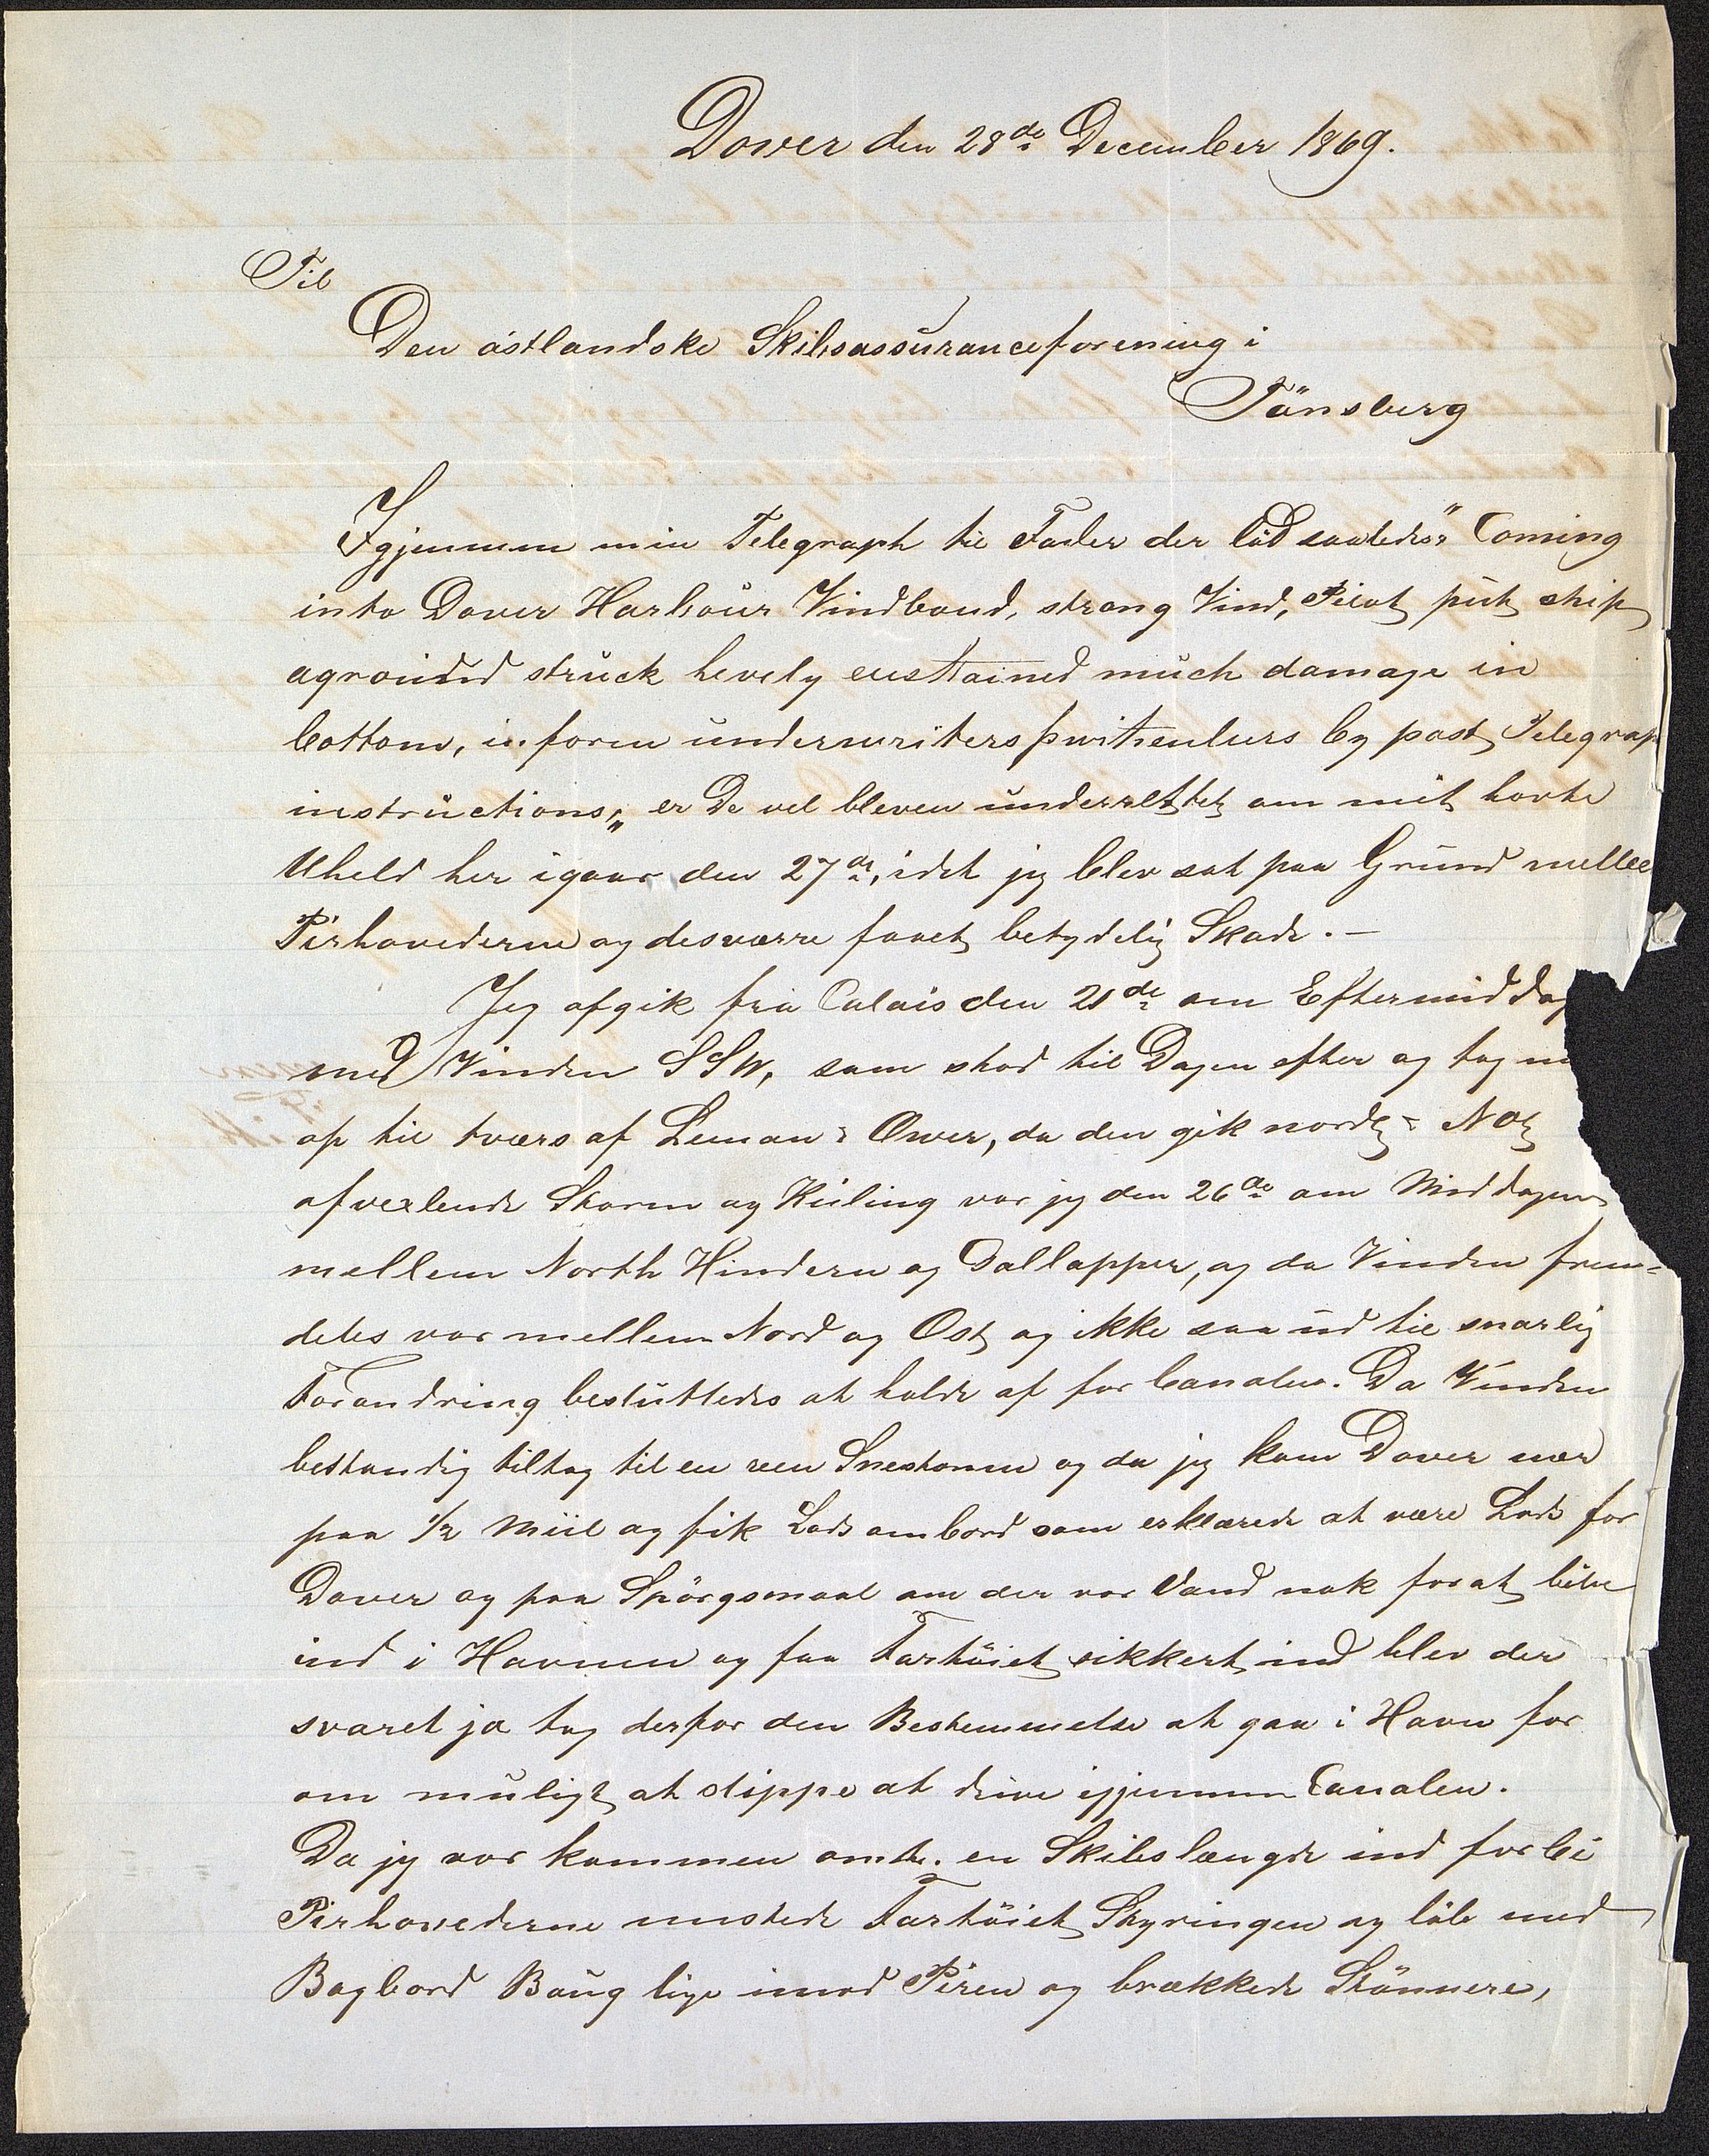 Dover den 28de December 1869.
Til
Den östlandske Skibsassuranceforening i
Tönsberg
Igjennem min Telegraph til Fader der löd saaledes "Coming
into Dover Harbour Vindboud, strong Vind, Pilot put ship
aground struck hevely sustained much damage in
bottom, inform underwriters by post Telegrap
instructions" er De vel bleven underrettet om mit havte
Uheld her igaar den 27de, idet jeg blev sat paa Grund mellem
Pirhovederne og desværre faaet betydelig Skade. —
Jeg afgik fra Calais den 21de om Eftermiddag
med Vinden SSW, som stod til Dagen efter og tog
op til tværs af Leman & Ower, da den gik nordlig & NO
afvexlende Storm og Kuling var jeg den 26de om Middagen
mellem North Hindern og Gallapper, og da Vinden frem=
deles var mellem Nord og Ost og ikke saa ud til snarlig
Forandring besluttedes at holde af for Canalen. Da Vinden
bestandig tiltog til en reen Snestorm og da jeg kom Dover nær
paa 1/2 Miil og fik Lods ombord som erklærede at være Lods for
Dover og paa Spörgsmaal om der var Vand nok for at
ind i Havnen og faa Fartöiet sikkert ind blev der
svaret ja tog derfor den Bestemmelse at gaa i Havn for
om muligt at slippe at drive igjennem Canalen.
Da jeg var kommen omtr. en Skibslængde ind forbi
Pirhovederne mistede Fartöiet Styringen og löb med
Bagbord Boug lige imod Piren og brækkede Stönneri,